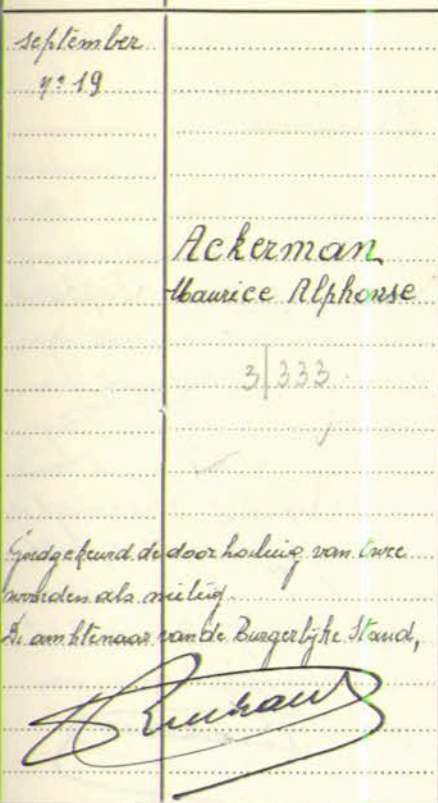 september
nº 19
Ackerman
Maurice Alphonse
3/333.
Goedgekeurd de doorhaling van twee
woorden als nietig.
De ambtenaar van de Burgerlijke Stand,